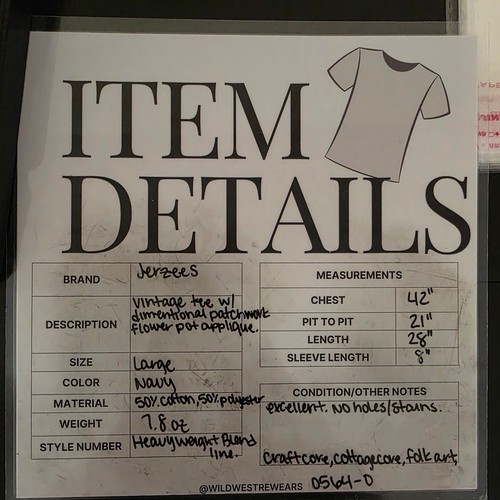 ITEM
DETAILS
BRAND Jerzees
DESCRIPTION vintage tee w/
dimentional patchwork
flower pot applique.
SIZE Large
COLOR Navy
MATERIAL 50% cotton, 50% polyester
WEIGHT 7.8 oz
STYLE NUMBER Heavyweight Blend
line.
MEASUREMENTS
CHEST 42"
PIT TO PIT 21"
LENGTH 28"
SLEEVE LENGTH 8"
CONDITION/OTHER NOTES
excellent. No holes/stains.
Craftcore, cottagecore, folk art,
@WILDWESTREWEARS 0564-0